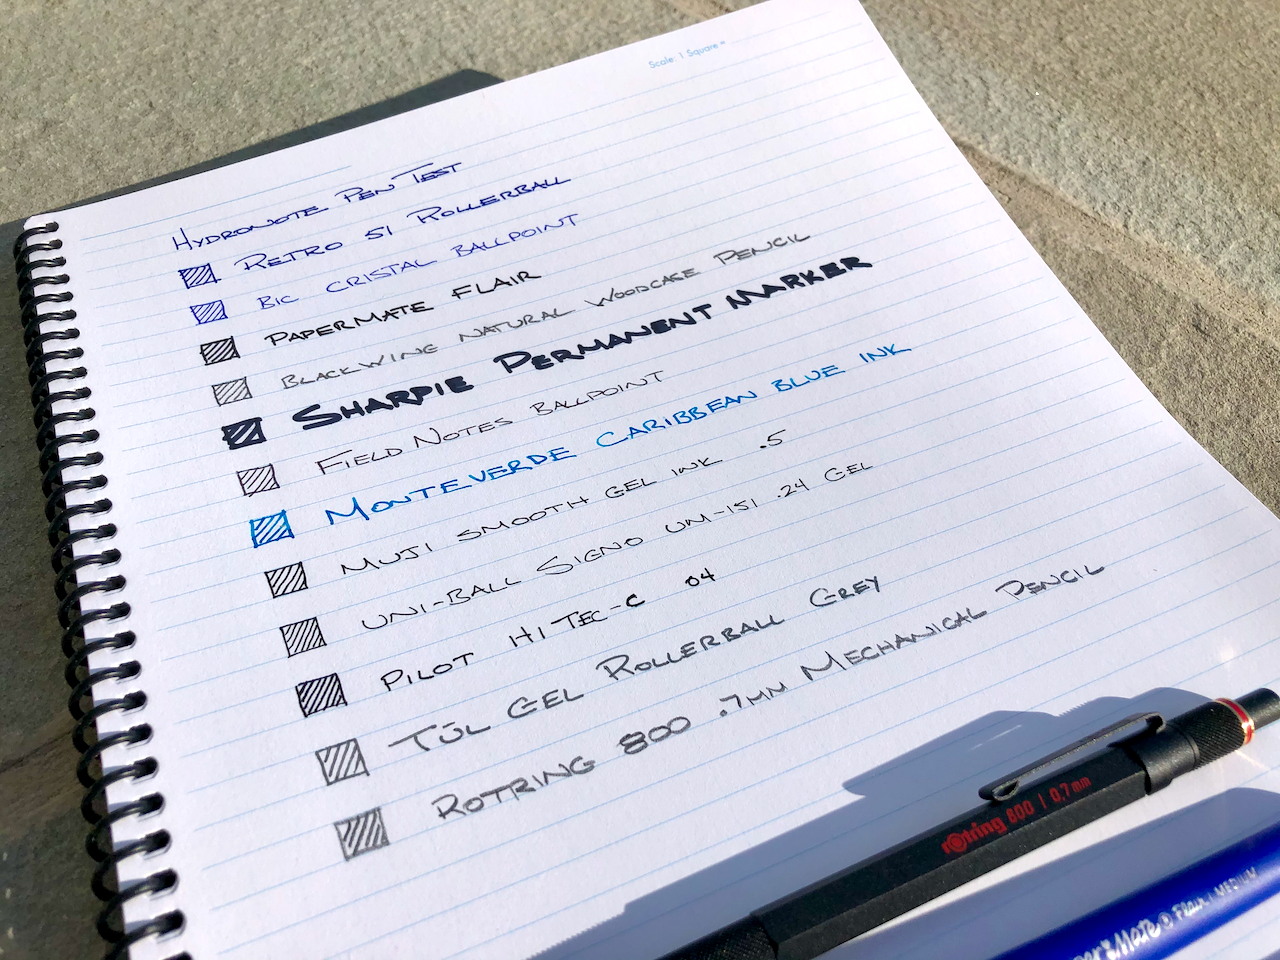 Scale 1 Square =
HYDRONOTE PEN TEST
RETRO 51 ROLLERBALL
BIC CRISTAL BALLPOINT
PAPERMATE FLAIR
BLACKWING NATURAL WOODCASE PENCIL
SHARPIE PERMANENT MARKER
FIELD NOTES BALLPOINT
MONTEVERDE CARIBBEAN BLUE INK
MUJI SMOOTH GEL INK .5
UNI-BALL SIGNO UM-151 .24 GEL
PILOT HI TEC-C 04
TŪL GEL ROLLERBALL GREY
ROTRING 800 .7MM MECHANICAL PENCIL
rotring 800 | 0,7mm
per Mate Flair MEDIUM